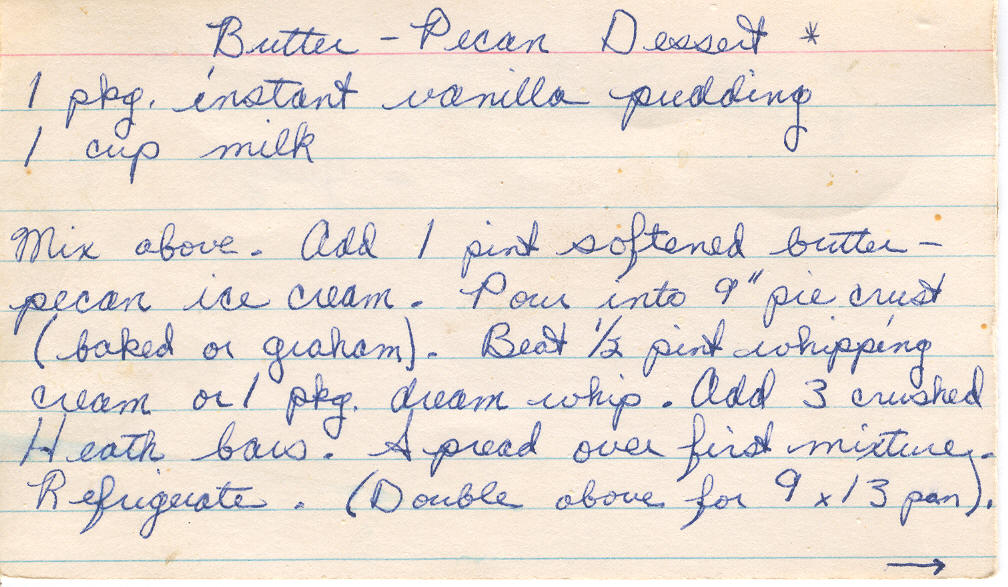 Butter - Pecan Dessert *
1 pkg. instant vanilla pudding
1 cup milk
Mix above. Add 1 pint softened butter-
pecan ice cream. Pour into 9" pie crust
(baked or graham). Beat 1/2 pint whipping
cream or 1 pkg. dream whip. Add 3 crushed
Heath bars. Spread over first mixture.
Refrigerate. (Double above for 9 x 13 pan).
→